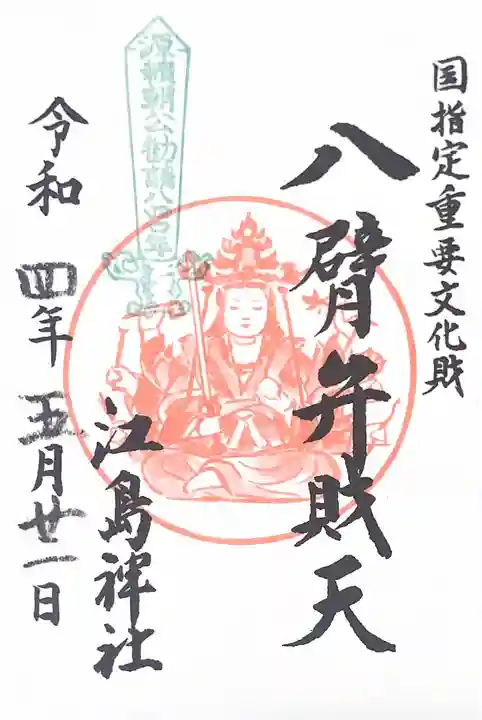 国指定重要文化財
八臂弁財天
源頼朝公勧請八百年
江島神社
令和 四年 五月廿一日